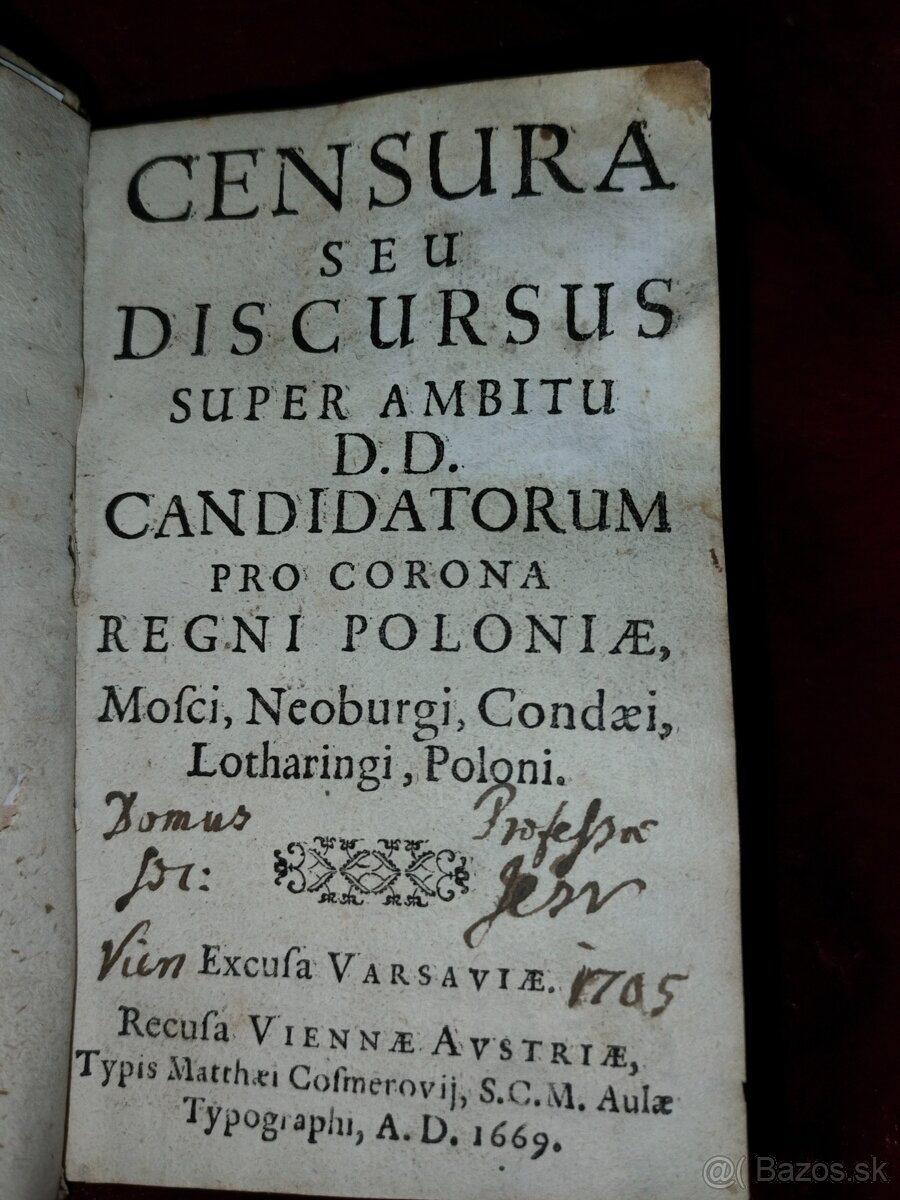 CENSURA
SEU
DISCURSUS
SUPER AMBITU
D.D.
CANDIDATORUM
PRO CORONA
REGNI POLONIÆ,
Moſci, Neoburgi, Condæi,
Lotharingi, Poloni.
Domus Professæ
Soc: Jesu
Vien Excuſa VARSAVIÆ. 1705
Recuſa VIENNÆ AVSTRIÆ,
Typis Matthæi Coſmerovij, S.C.M. Aulæ
Typographi, A. D. 1669.
@( Bazos.sk